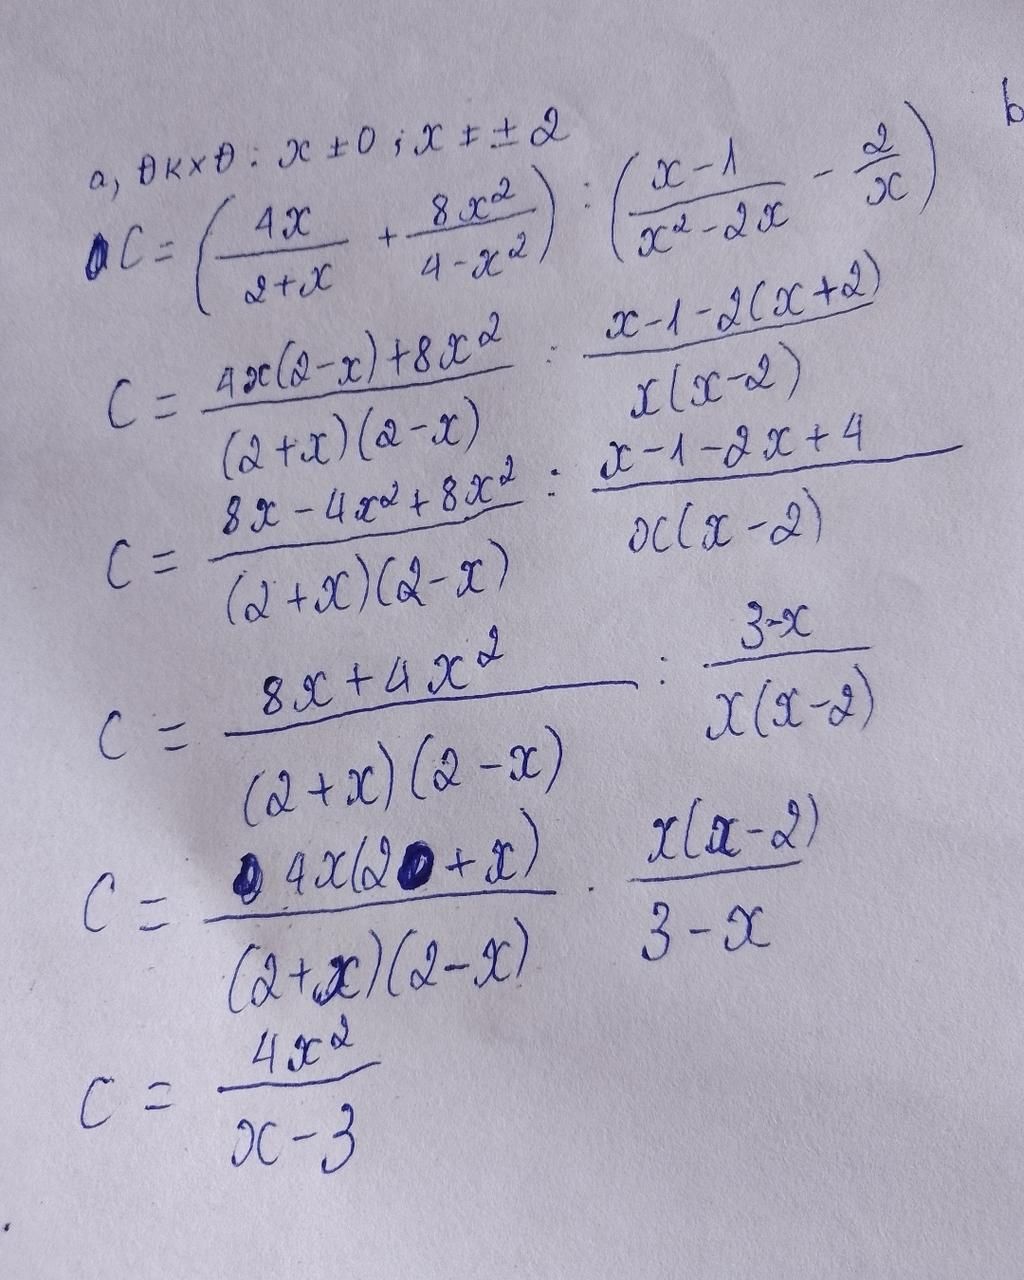 a, ĐKXĐ: x ≠ 0 ; x ≠ ± 2
C = (4x/(2+x) + 8x²/(4-x²)) : ((x-1)/(x²-2x) - 2/x)
C = (4x(2-x)+8x²)/((2+x)(2-x)) : (x-1-2(x+2))/(x(x-2))
C = (8x-4x²+8x²)/((2+x)(2-x)) : (x-1-2x+4)/(x(x-2))
C = (8x+4x²)/((2+x)(2-x)) : (3-x)/(x(x-2))
C = (4x(2+x))/((2+x)(2-x)) . (x(x-2))/(3-x)
C = 4x²/(x-3)
b